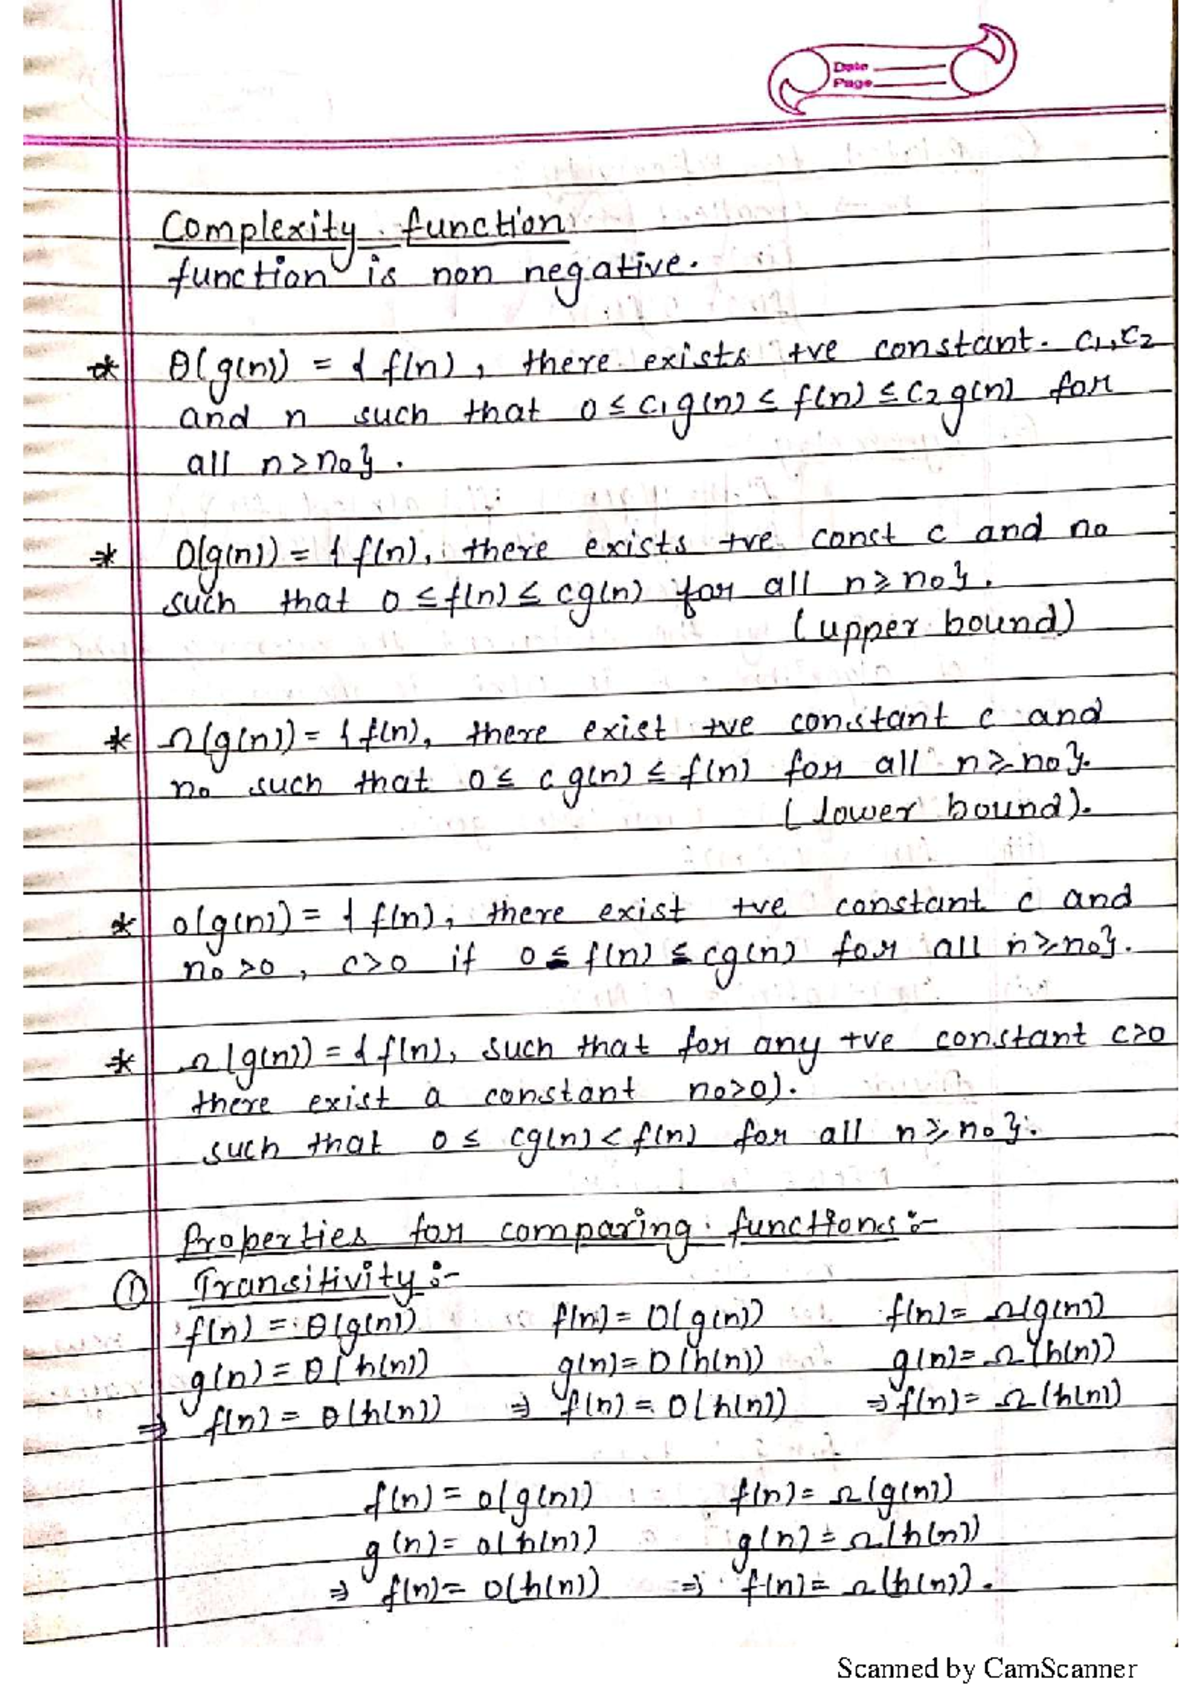 Date
Page
Complexity function
function is non negative.
* θ(g(n)) = { f(n), there exists +ve constant. c₁, c₂
and n such that 0 ≤ c₁g(n) ≤ f(n) ≤ c₂g(n) for
all n > n₀}.
* O(g(n)) = { f(n), there exists +ve const c and n₀
such that 0 ≤ f(n) ≤ cg(n) for all n ≥ n₀}.
(upper bound)
* Ω(g(n)) = { f(n), there exist +ve constant c and
n₀ such that 0 ≤ cg(n) ≤ f(n) for all n ≥ n₀}.
(lower bound).
* o(g(n)) = { f(n), there exist +ve constant c and
n₀ > 0, c > 0 if 0 ≤ f(n) ≤ cg(n) for all n ≥ n₀}.
* Ω(g(n)) = { f(n), such that for any +ve constant c > 0
there exist a constant n₀ > 0).
such that 0 ≤ cg(n) < f(n) for all n ≥ n₀}.
Properties for comparing functions :-
① Transitivity :-
f(n) = θ(g(n)) f(n) = O(g(n)) f(n) = Ω(g(n))
g(n) = θ(h(n)) g(n) = O(h(n)) g(n) = Ω(h(n))
⇒ f(n) = θ(h(n)) ⇒ f(n) = O(h(n)) ⇒ f(n) = Ω(h(n))
f(n) = o(g(n)) f(n) = Ω(g(n))
g(n) = o(h(n)) g(n) = Ω(h(n))
⇒ f(n) = O(h(n)) ⇒ f(n) = Ω(h(n)).
Scanned by CamScanner